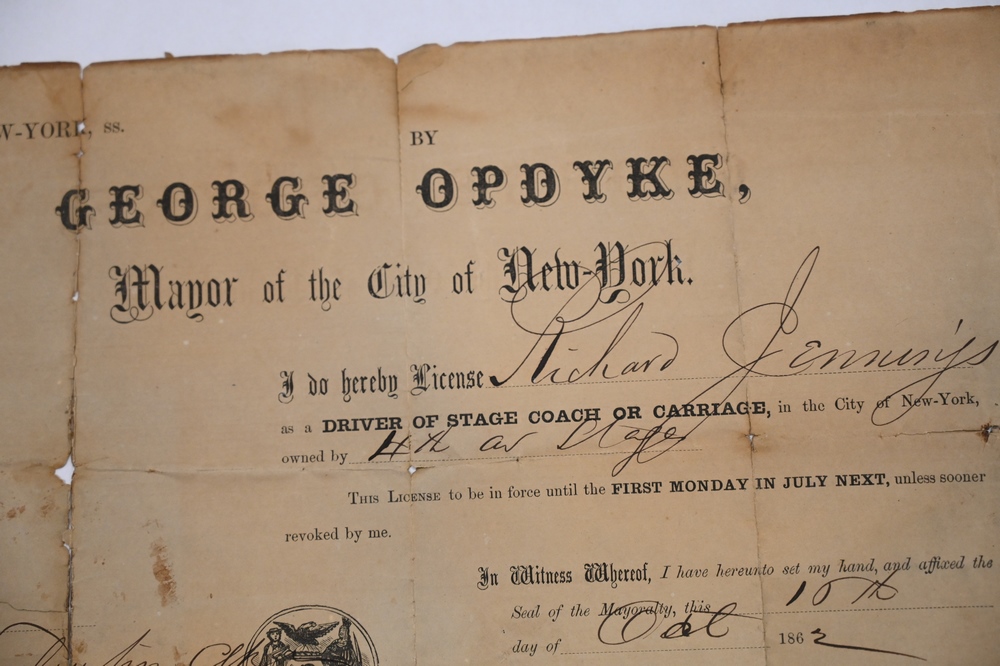 W-YORK, ss.
BY
GEORGE OPDYKE,
Mayor of the City of New-York.
I do hereby License Richard Jennings
as a DRIVER OF STAGE COACH OR CARRIAGE, in the City of New-York,
owned by 4th av Stage
THIS LICENSE to be in force until the FIRST MONDAY IN JULY NEXT, unless sooner
revoked by me.
In Witness Whereof, I have hereunto set my hand, and affixed the
Seal of the Mayoralty, this 10th
day of Oct 1862